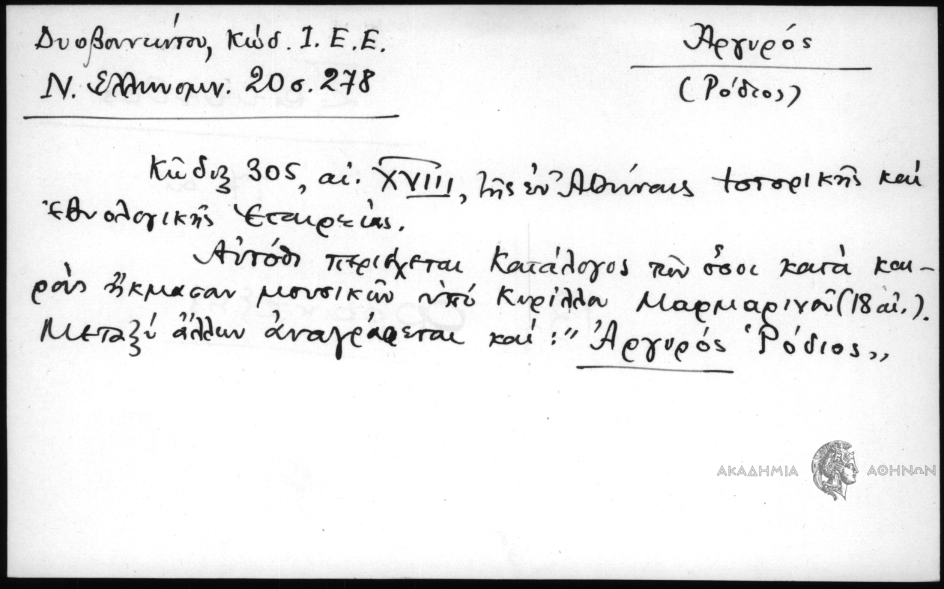 Δυοβουνιώτου, Κώδ. Ι. Ε. Ε.
Ν. Ἑλληνομν. 20 σ. 278
Ἀργυρός
(Ρόδιος)
Κῶδιξ 305, αἰ. XVIII, τῆς ἐν Ἀθήναις Ἱστορικῆς καὶ
Ἐθνολογικῆς Ἑταιρείας.
Αὐτόθι περιέχεται Κατάλογος τῶν ὅσοι κατὰ και-
ροὺς ἤκμασαν μουσικῶν ὑπὸ Κυρίλλου Μαρμαρινοῦ (18 αἰ.).
Μεταξὺ ἄλλων ἀναγράφεται καὶ: "Ἀργυρός Ῥόδιος"
ΑΚΑΔΗΜΙΑ ΑΘΗΝΩΝ